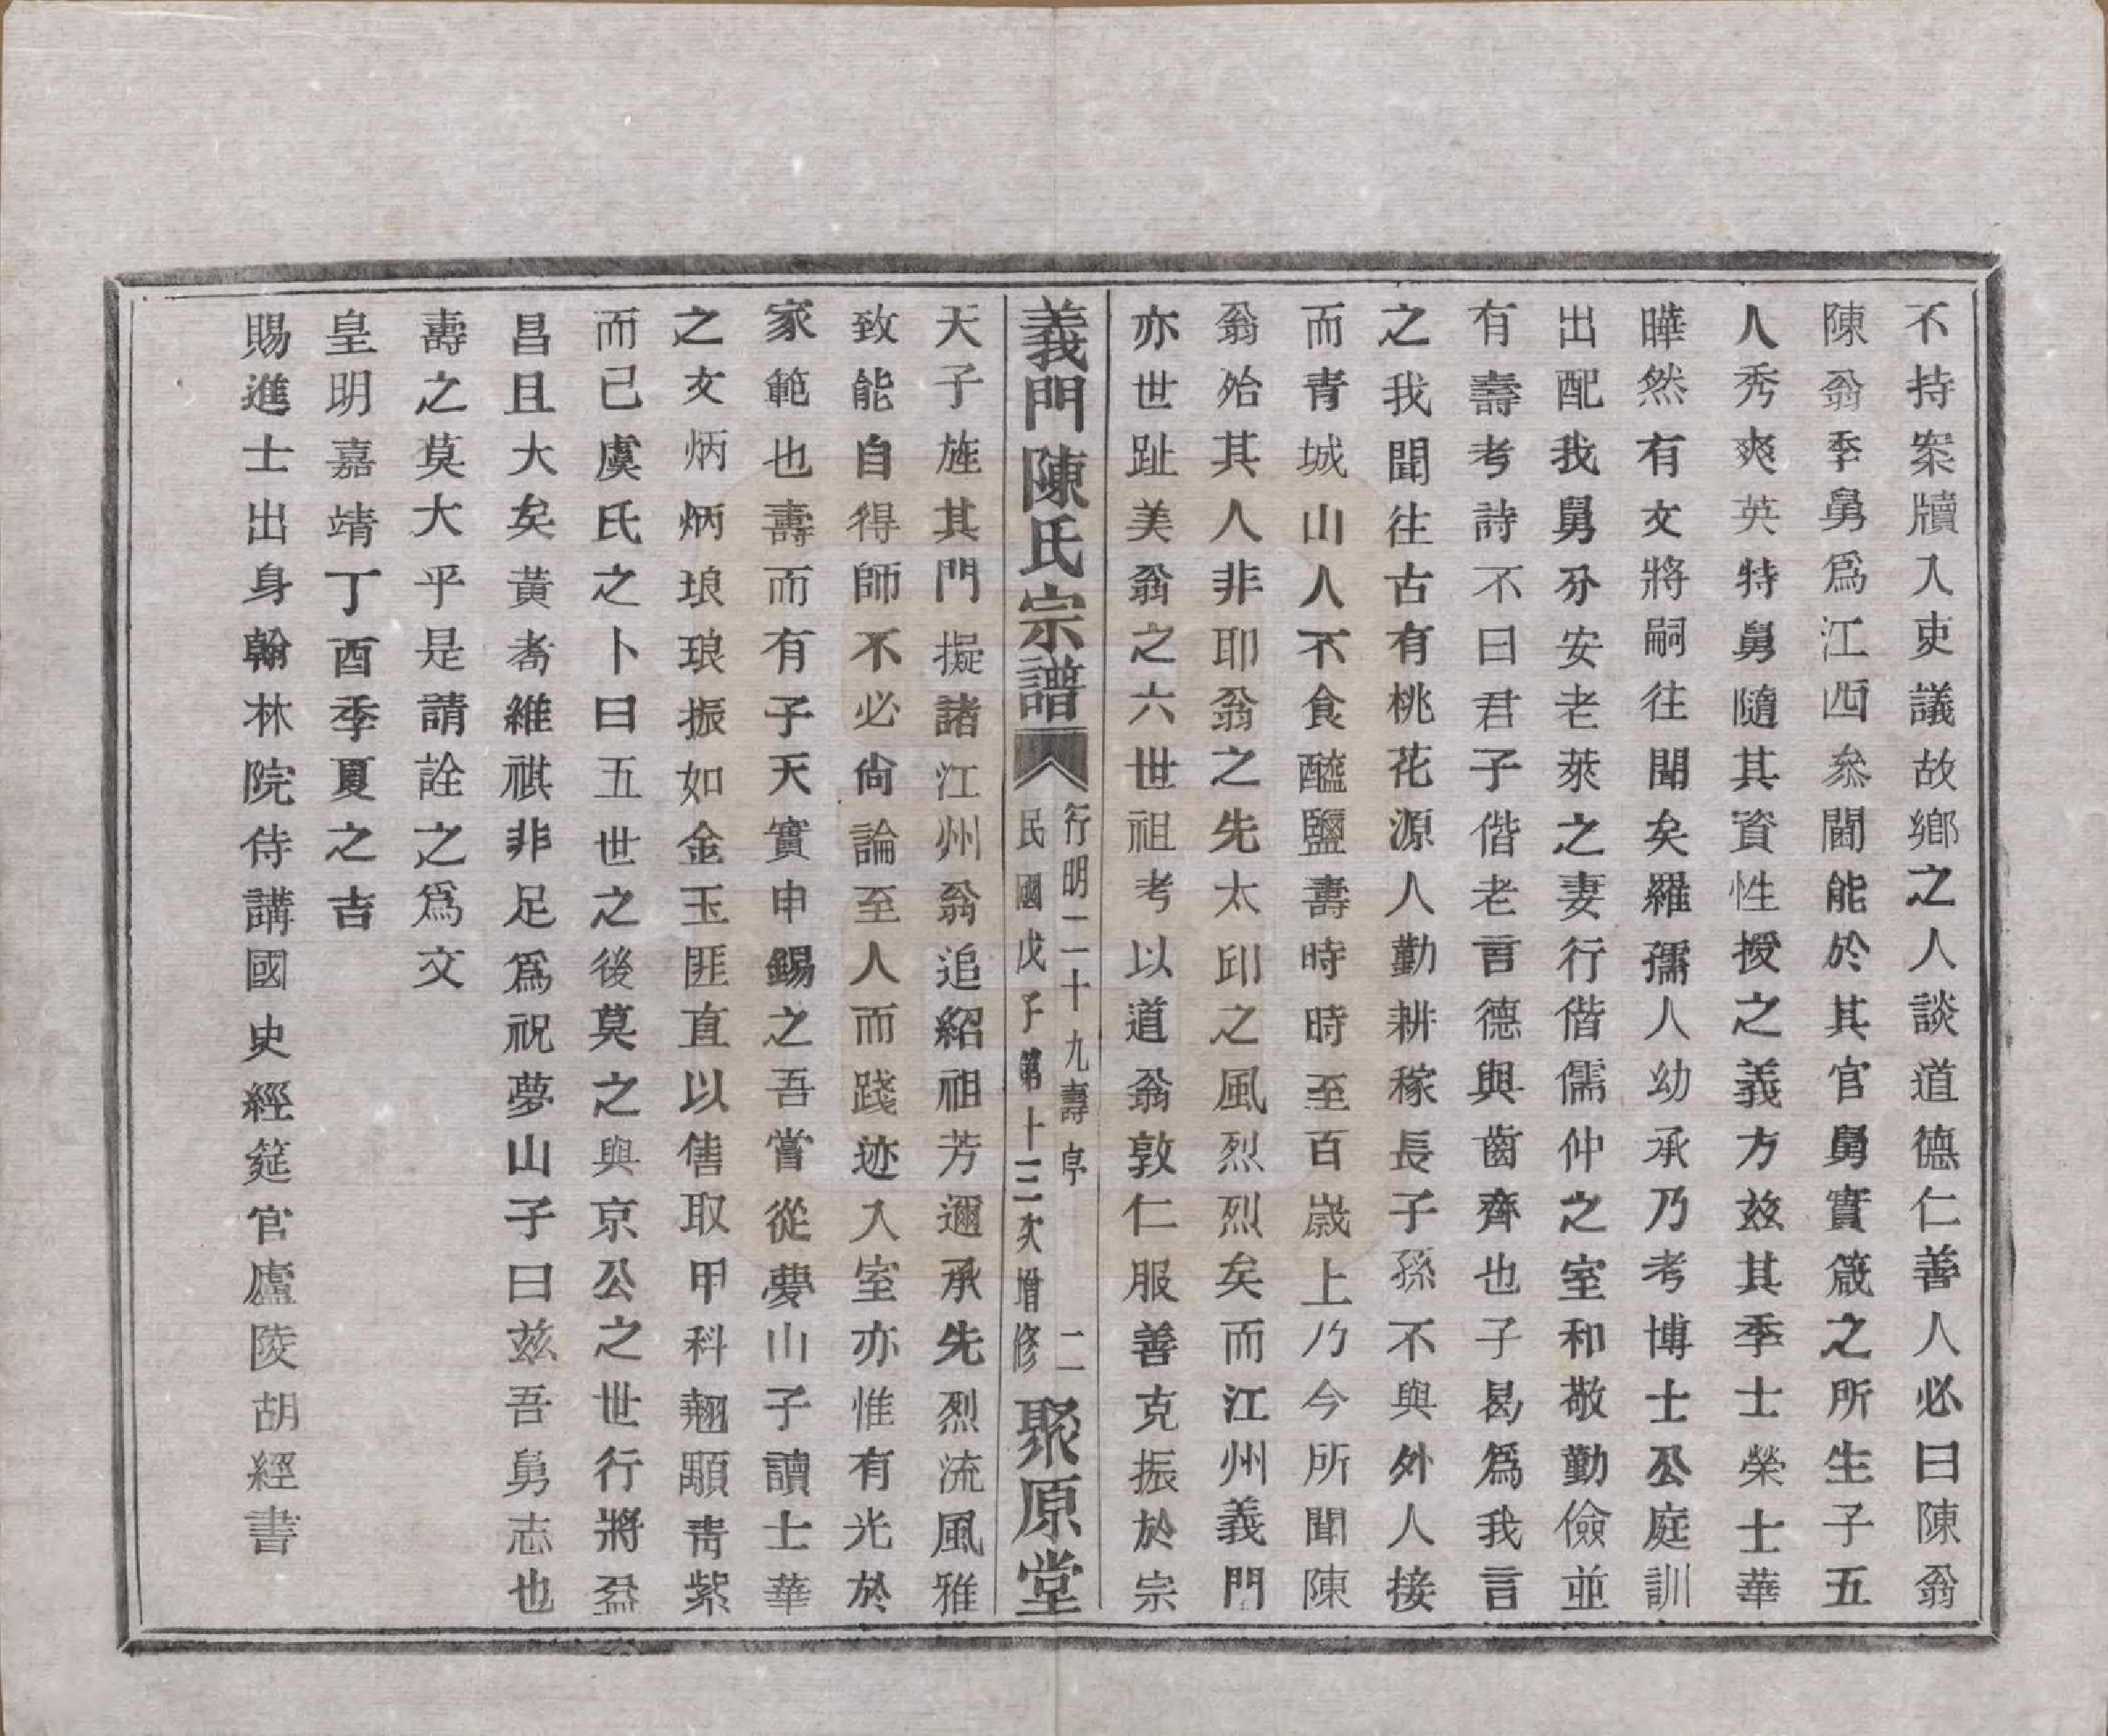 不持案牘入吏議故鄉之人談道德仁善人必曰陳翁
陳翁季舅爲江西叅閫能於其官舅實箴之所生子五
人秀爽英特舅隨其資性授之義方玆其季士榮士華
曄然有文將嗣往聞矣羅孺人幼承乃考博士公庭訓
出配我舅分安老萊之妻行偕儒仲之室和敬勤儉並
有壽考詩不曰君子偕老言德與齒齊也子曷爲我言
之我聞往古有桃花源人勤耕稼長子孫不與外人接
而青城山人不食醯鹽壽時時至百歲上乃今所聞陳
翁殆其人非耶翁之先太邱之風烈烈矣而江州義門
亦世趾美翁之六世祖考以道翁敦仁服善克振於宗
義門陳氏宗譜
行明二十九壽序 二
民國戊子第十三次增修
聚原堂
天子旌其門擬諸江州翁追紹祖芳邇承先烈流風雅
致能自得師不必尙論至人而踐迹入室亦惟有光於
家範也壽而有子天實申錫之吾嘗從夢山子讀士華
之文炳炳琅琅振如金玉匪直以售取甲科翹顒青紫
而已虞氏之卜曰五世之後莫之與京公之世行將盈
昌且大矣黃耈維祺非足爲祝夢山子曰玆吾舅志也
壽之莫大乎是請詮之爲文
皇明嘉靖丁酉季夏之吉
賜進士出身翰林院侍講國史經筵官廬陵胡經書